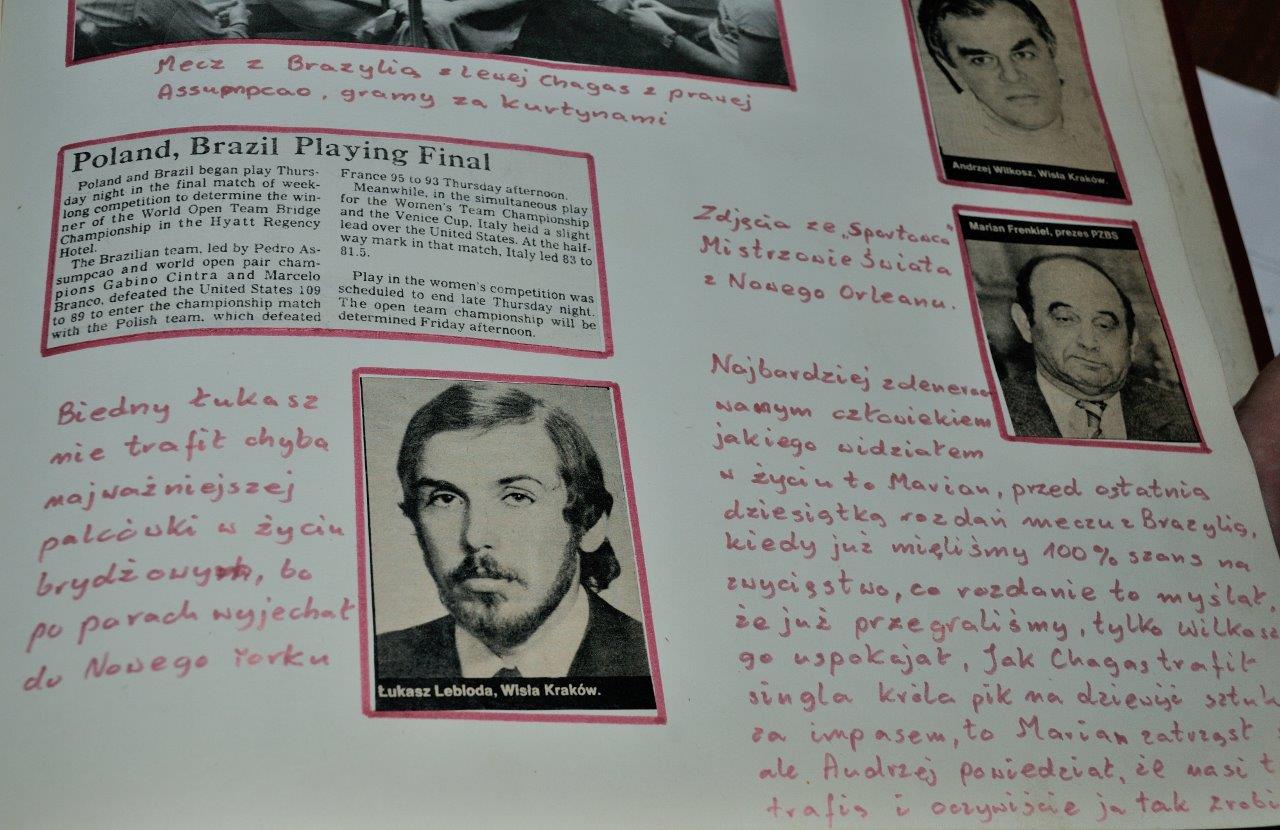 Mecz z Brazylią z lewej Chagas z prawej
Assumpcao, gramy za kurtynami
Poland, Brazil Playing Final
Poland and Brazil began play Thurs-
day night in the final match of week-
long competition to determine the win-
ner of the World Open Team Bridge
Championship in the Hyatt Regency
Hotel.
The Brazilian team, led by Pedro As-
sumpcao and world open pair cham-
pions Gabino Cintra and Marcelo
Branco, defeated the United States 109
to 89 to enter the championship match
with the Polish team, which defeated
France 95 to 93 Thursday afternoon.
Meanwhile, in the simultaneous play
for the Women's Team Championship
and the Venice Cup, Italy held a slight
lead over the United States. At the half-
way mark in that match, Italy led 83 to
81.5.
Play in the women's competition was
scheduled to end late Thursday night.
The open team championship will be
determined Friday afternoon.
Biedny Łukasz
nie trafił chyba
najważniejszej
palcówki w życiu
brydżowym, bo
po parach wyjechał
do Nowego Yorku
Łukasz Lebioda, Wisła Kraków.
Andrzej Wilkosz, Wisła Kraków.
Zdjęcia ze „Sportowca"
Mistrzowie Świata
z Nowego Orleanu.
Marian Frenkiel, prezes PZBS
Najbardziej zdenerwo
wanym człowiekiem
jakiego widziałem
w życiu to Marian, przed ostatnią
dziesiątką rozdań meczu z Brazylią,
kiedy już mięliśmy 100% szans na
zwycięstwo, co rozdanie to myślał,
że już przegraliśmy, tylko Wilkosz
go uspokajał, Jak Chagas trafił
singla króla pik na dziewięć sztuk
za impasem, to Marian zatrząsł
ale Andrzej powiedział, że nasi
trafią i oczywiście ja tak zrobi